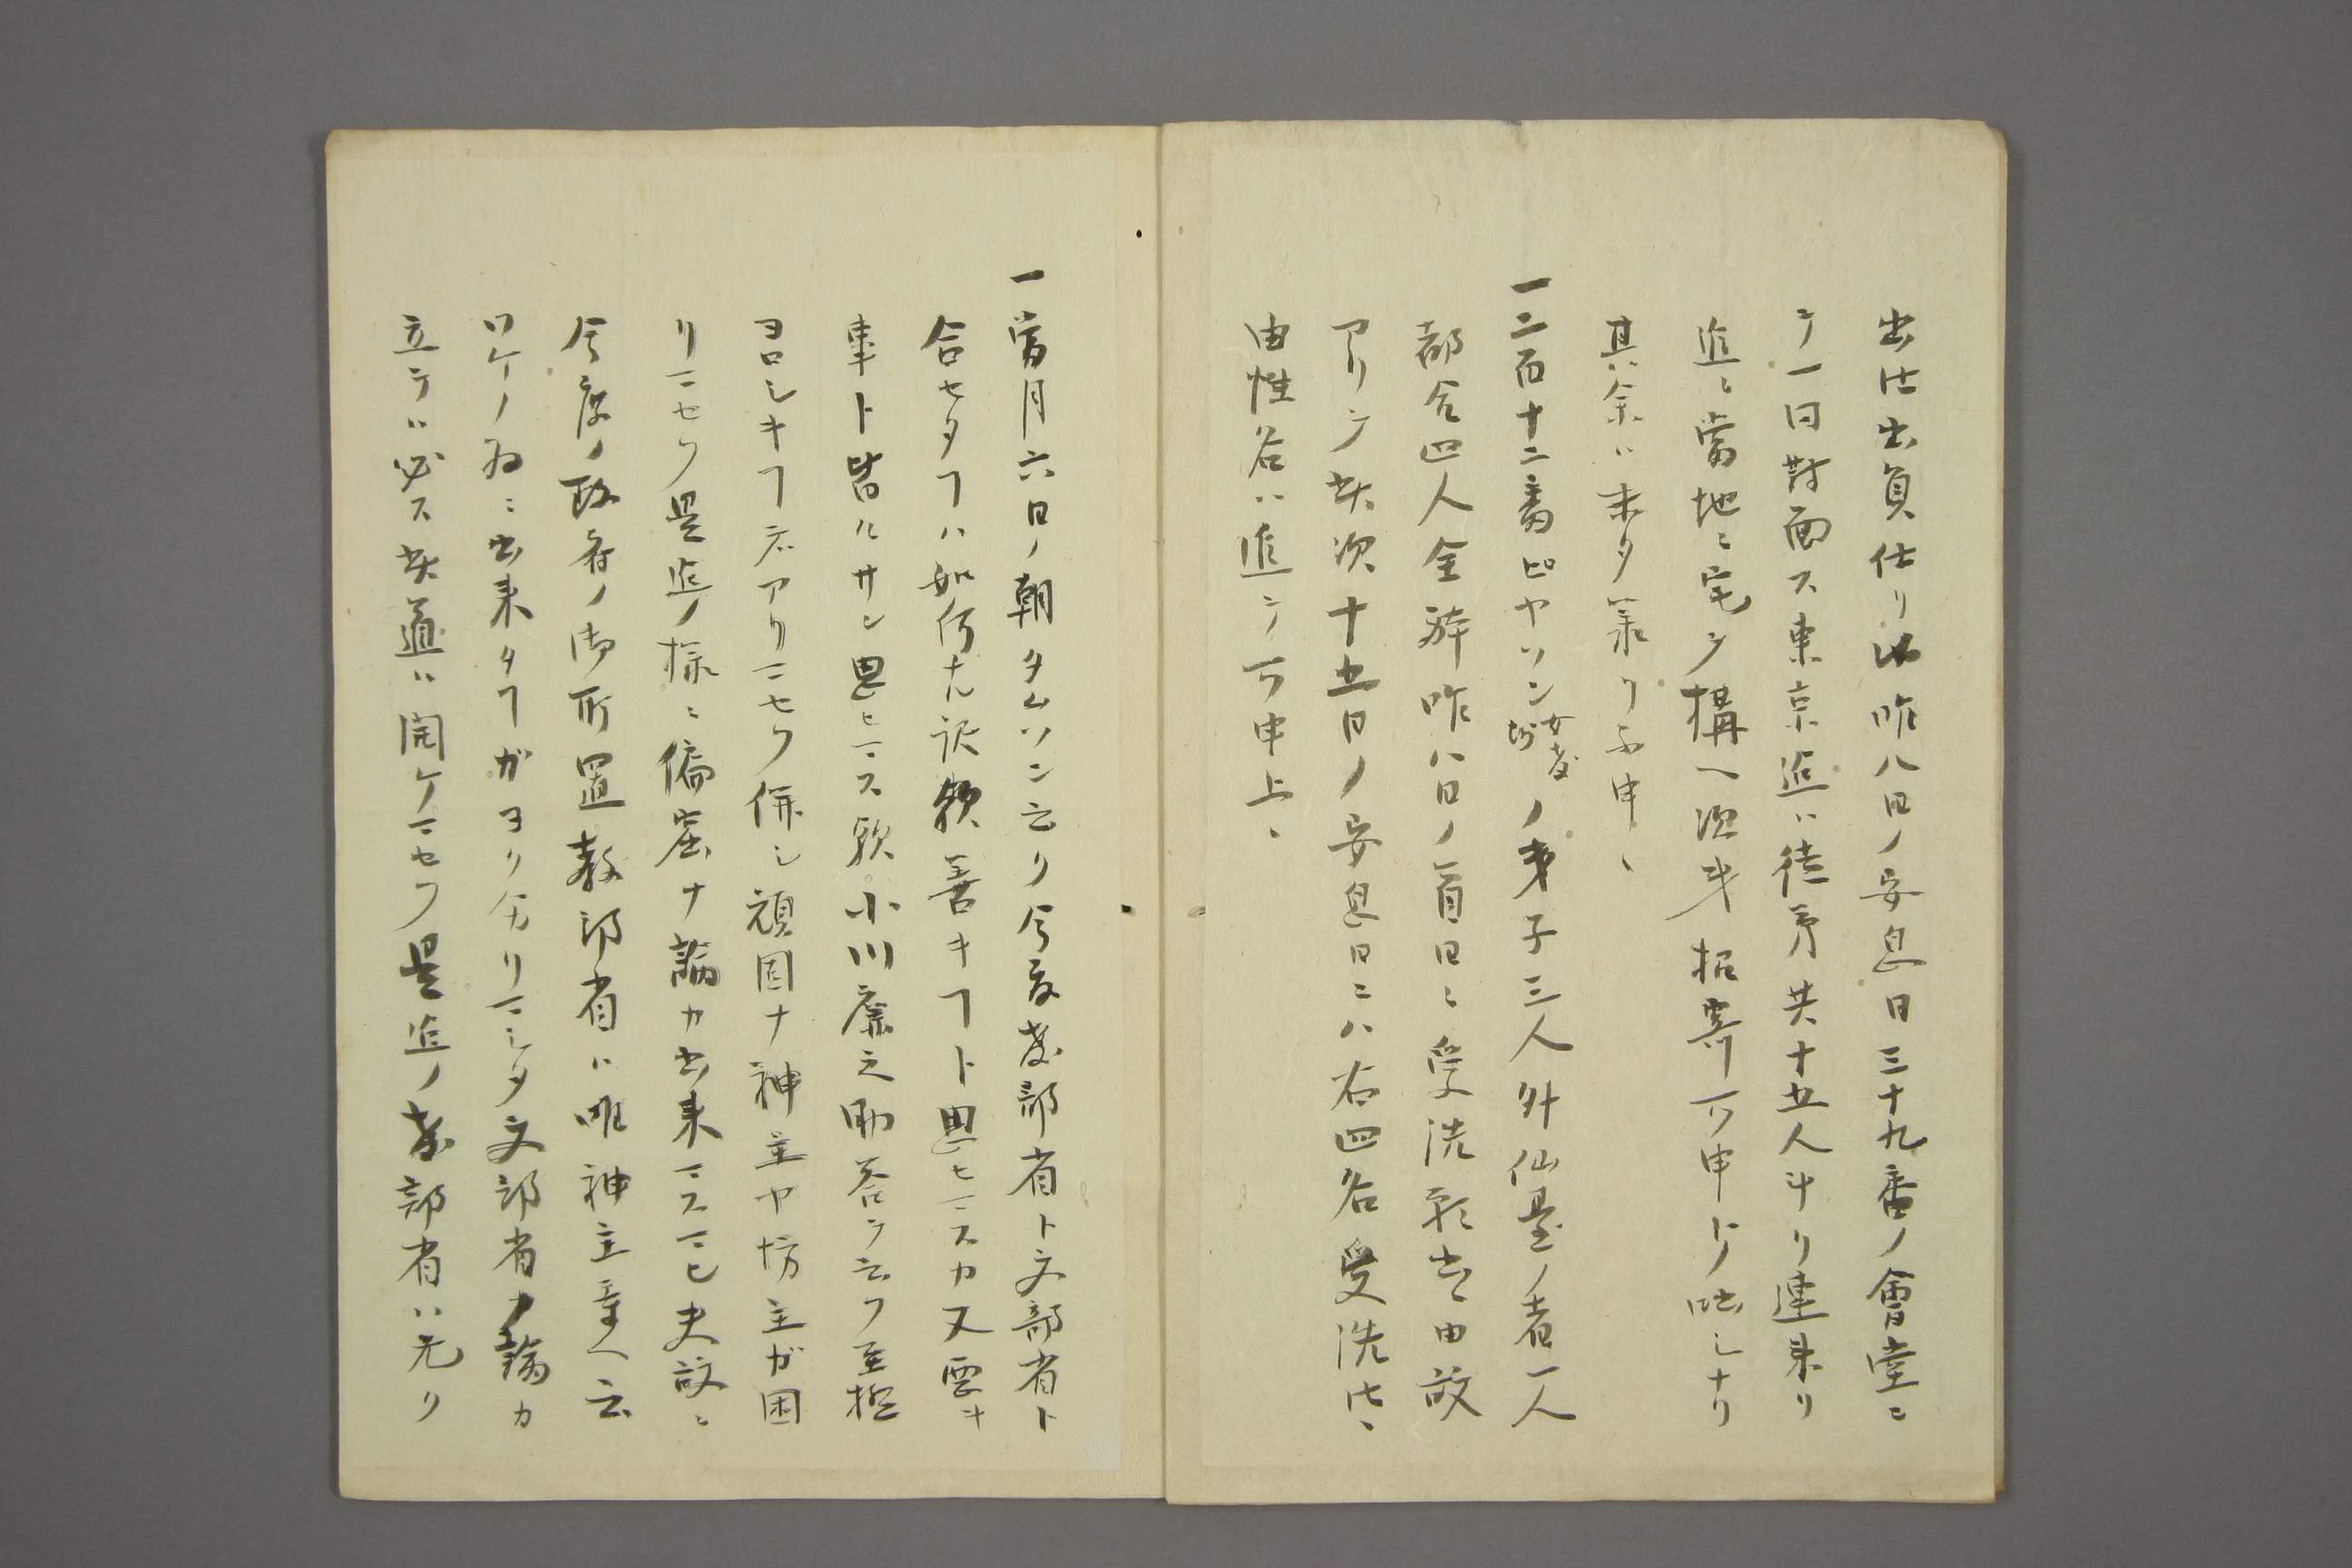 出仕出負仕リ候昨八日ノ安息日三十九番ノ會堂ニ
テ一同對面ス東京近ハ徒弟共十五人斗リ連来リ
追々當地ニ宅ヲ構ヘ次第招寄可申ト咄シナリ
其余ハ未タ承リ不申候
一二百十二番ピヤソン女教師ノ弟子三人外仙臺ノ者一人
都合四人全躰昨八日ノ盲日ニ受洗願出由故
アリテ其次十五日ノ安息日ニハ右四名受洗候
由姓名ハ追テ可申上候
一當月六日ノ朝タムソン云リ今度教部省ト文部省ト
合セタヿハ如何ナル訳歟善キヿト思ヒマスカ又悪キ
事ト皆ルサン思ヒマス歟小川廉之助答テ云フ至極
ヨロシキヿデアリマセフ併シ頑固ナ神主ヤ坊主ガ困
リマセフ是迄ノ様ニ偏屈ナ論カ出来マスマヒ夫故ニ
今度ノ政府ノ御所置教部省ハ唯神主輩ヘ云
ワケノ為ニ出来タヿガヨリ分リマシタ文部省ノ論カ
立テハ必ス其道ハ開ケマセフ是迄ノ教部省ハ元リ